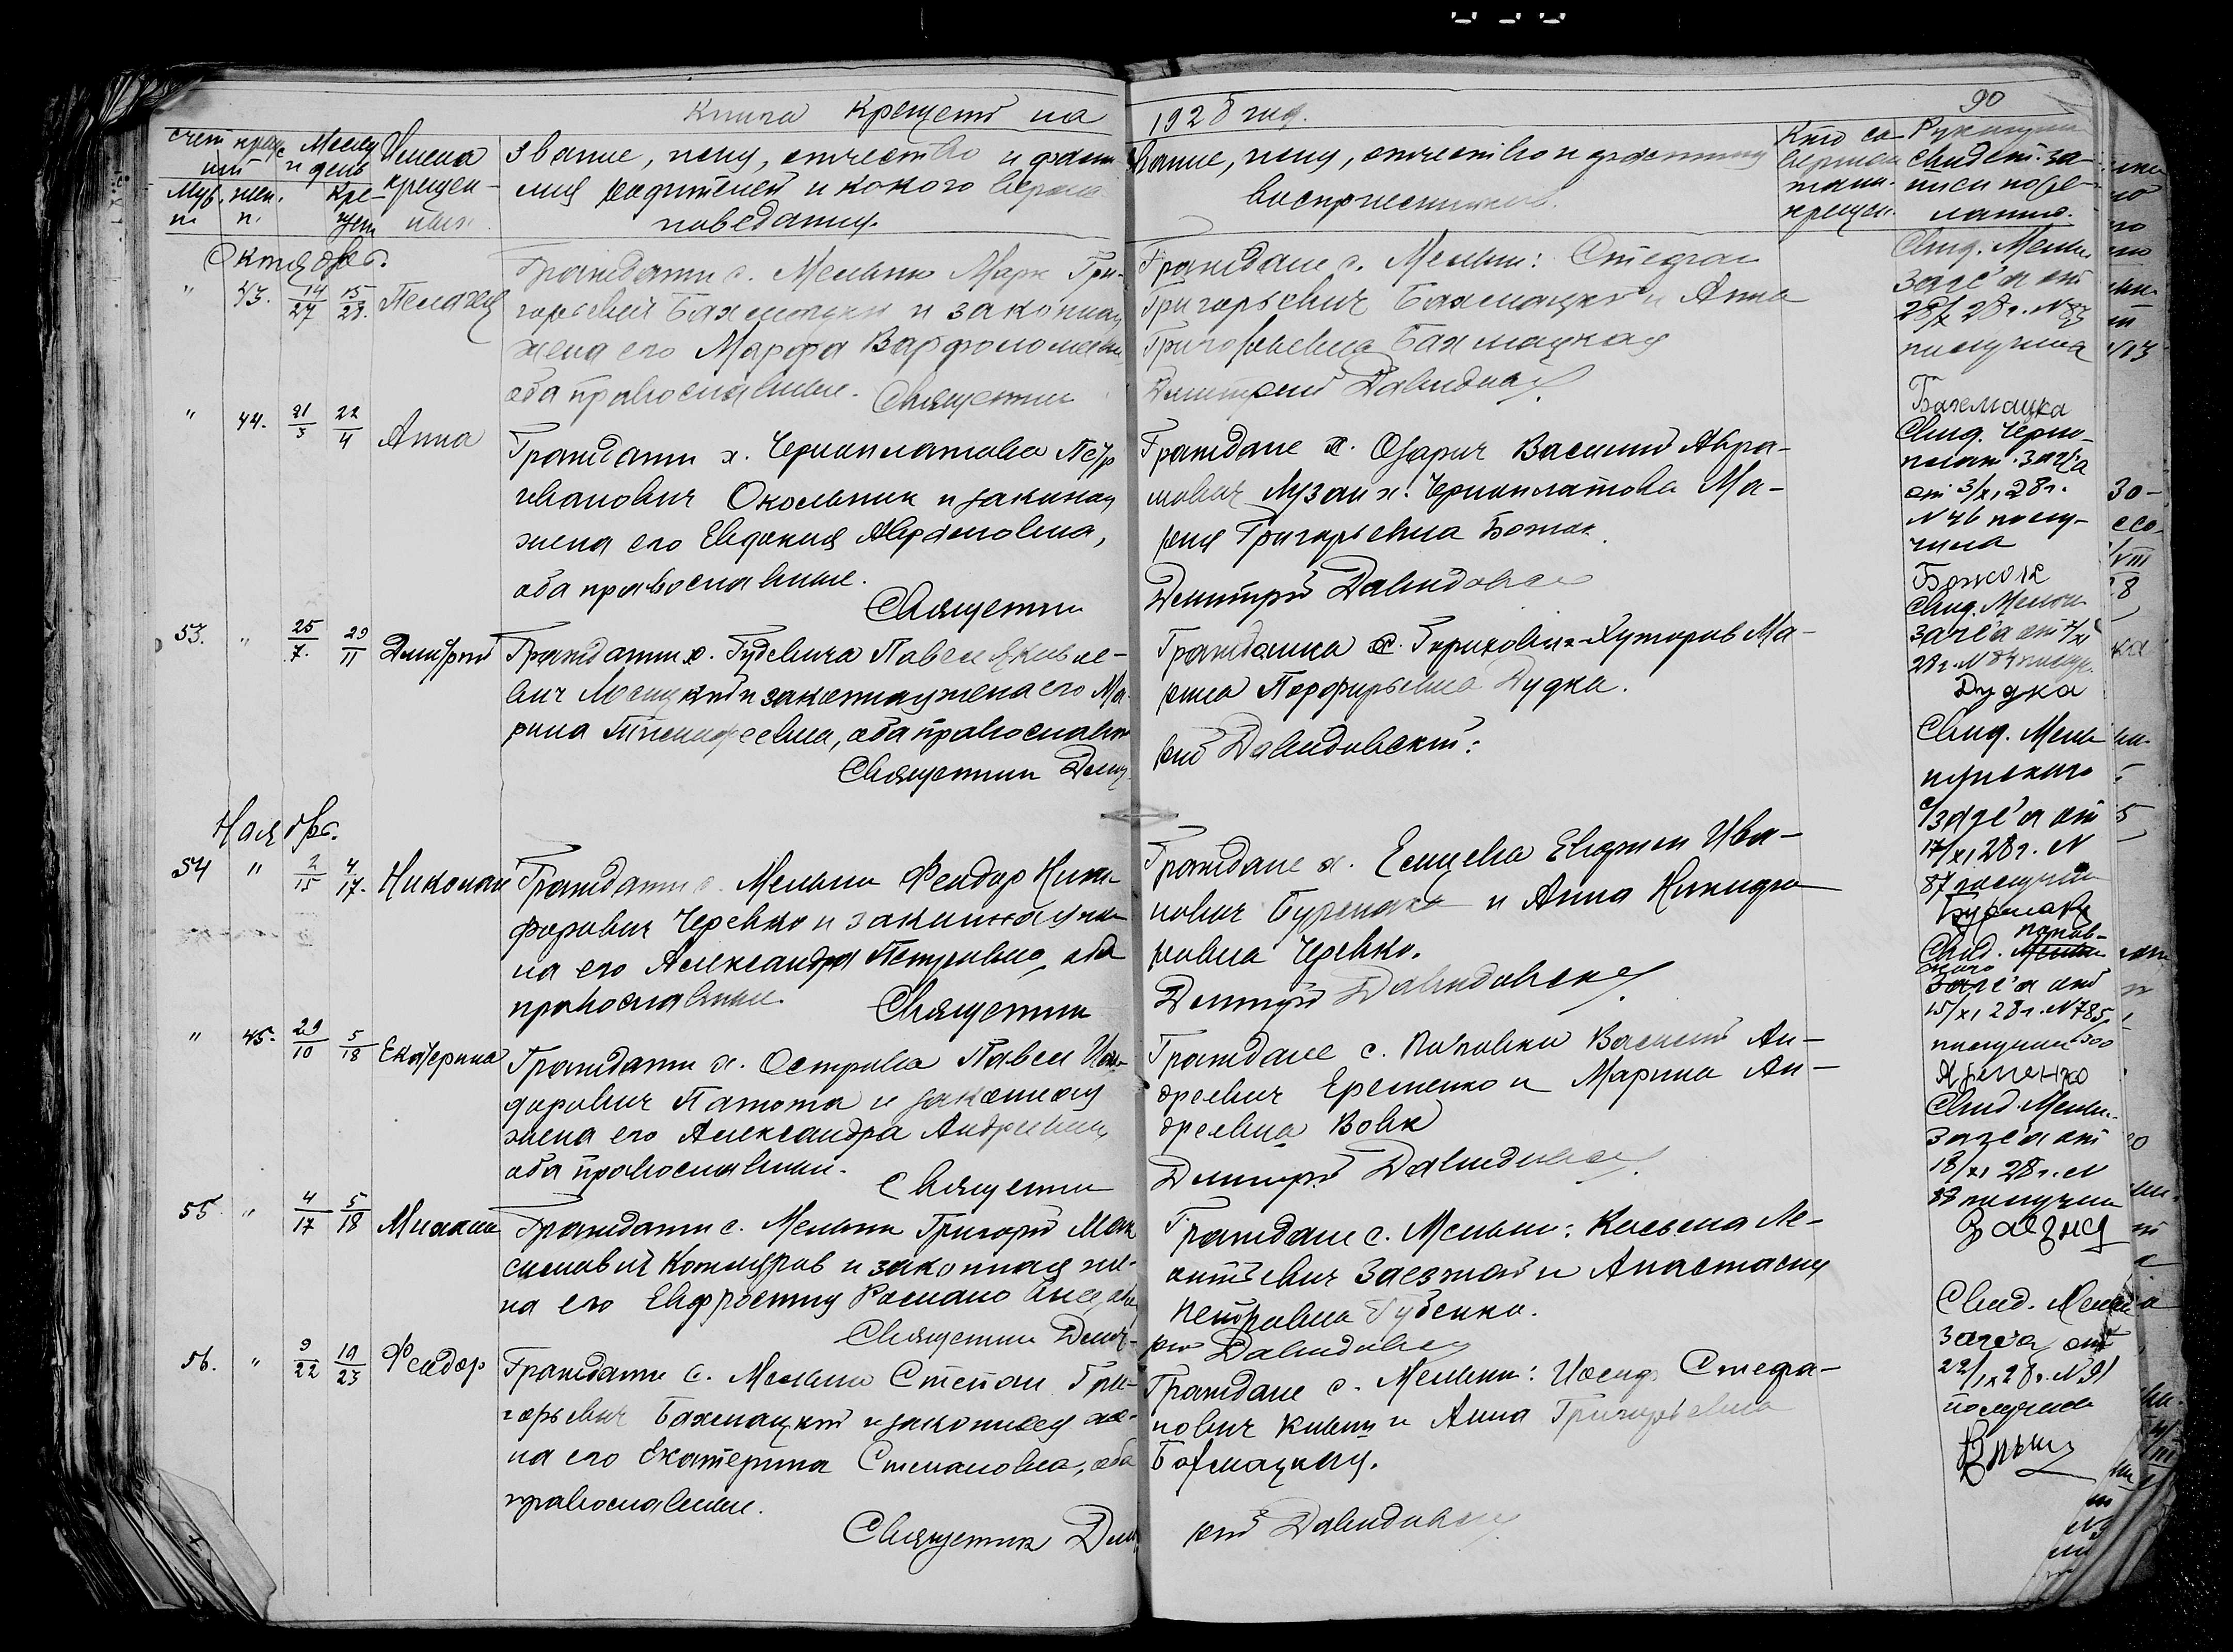 Книга Крещеній на 1928 год.
90
Счет креще-
ній
Муж. жен.
п. п.
Месяц
и день
Кре-
щен
Имена
крещен-
ных
Звание, имя, отчество и фами-
лия родителей и какого веро-
поведания.
Звание, имя, отчество и фамилия
восприемников.
Кто со-
вершал
таин.
крещен.
Рукоприк
свидет. за-
писи по же-
ланию.
Октябрь.
" 43. 14/27 15/28. Пелагея
Гражданин с. Мельни Марк Гри-
горьевич Бахмацкий и законная
жена его Марфа Варфоломеевна
оба православные. Священник
Граждане с. Мельни: Стефан
Григорьевич Бахмацкий и Анна
Григорьевна Бахмацкая
Дмитрий Давидовск
Свид. Мельн.
Загс'а от
28/X 28 г. № 83
получила
Бахмацка
" 44. 21/3 22/4 Анна
Гражданин х. Черноплатова Петр
Иванович Окольник и законная
жена его Евдокия Абрамовна,
оба православные.
Священник
Граждане х. Озарич Василий Абра-
мович Лузан х. Черноплатова Ма-
рия Григорьевна Божок.
Дмитрий Давидовск
Свид. Черно-
плат. Загса
от 3/XI 28 г.
№ 46 полу-
чила
Божок
53. " 25/7. 29/11 Димитрий
Гражданин х. Гудевича Павел Яковле-
вич и законная жена его Ма-
рина, оба православн
Священник Дими
Гражданка х. Хуторов Ма-
рина Порфирьевна Дудка.
рий Давидовский:
Свид. Мельн
Загс'а от /XI
28 г. № 84 получ.
Дудка
Ноябрь.
54 " 2/15 4/17. Николай
Гражданин с. Мельни Феодор Ники-
форович Черевко и законная же-
на его Александра Петровна, оба
православные. Священник
Граждане х. Есипева Евфим Ива-
нович Бурмака и Анна Никифо-
ровна Черевко.
Дмитрий Давидовск
Свид. Мель
с/загс'а от
17/XI 28 г. №
87 получил
Бурмака
" 45. 29/10 5/18 Екатерина
Гражданин х. Острива Павел
дорович Папота и законная
жена его Александра Андреевна
оба православные.
Священник
Граждане с. Поповки Василий Ан-
дреевич Еременко и Марина Ан-
дреевна Вовк
Дмитрий Давидовск
Свид. попов-
ского
загс'а от
15/XI 28 г. № 785
получил
Яременко
55 " 4/17 5/18 Михаил
Гражданин с. Мельни Григорий Мак
симович Котляров и законная же-
на его Евфросиния Романовна, оба
Священник Дмит-
Граждане с. Мельни: Косьма Ле-
онтьевич Заезжай и Анастасия
Петровна Губенко.
рий Давидовск
Свид. Мельн.
Загс'а от
18/XI 28 г. №
88 получил
56. " 9/22 10/23 Феодор
Гражданин с. Мельни Степан Гри-
горьевич Бахмацкий и законная же-
на его Екатерина Степановна, оба
православные.
Священник Дми
Граждане с. Мельни: Иосиф Стефа-
нович Книш и Анна Григорьевна
Бахмацкая.
рий Давидовск
Свид. Мельн
Загса от
22/ 28 г. № 91
получила